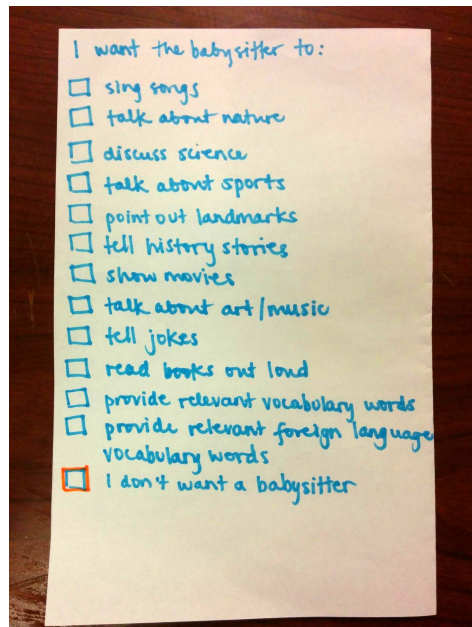 I want the babysitter to:
sing songs
talk about nature
discuss science
talk about sports
point out landmarks
tell history stories
show movies
talk about art/music
tell jokes
read books out loud
provide relevant vocabulary words
provide relevant foreign language
vocabulary words
I don't want a babysitter